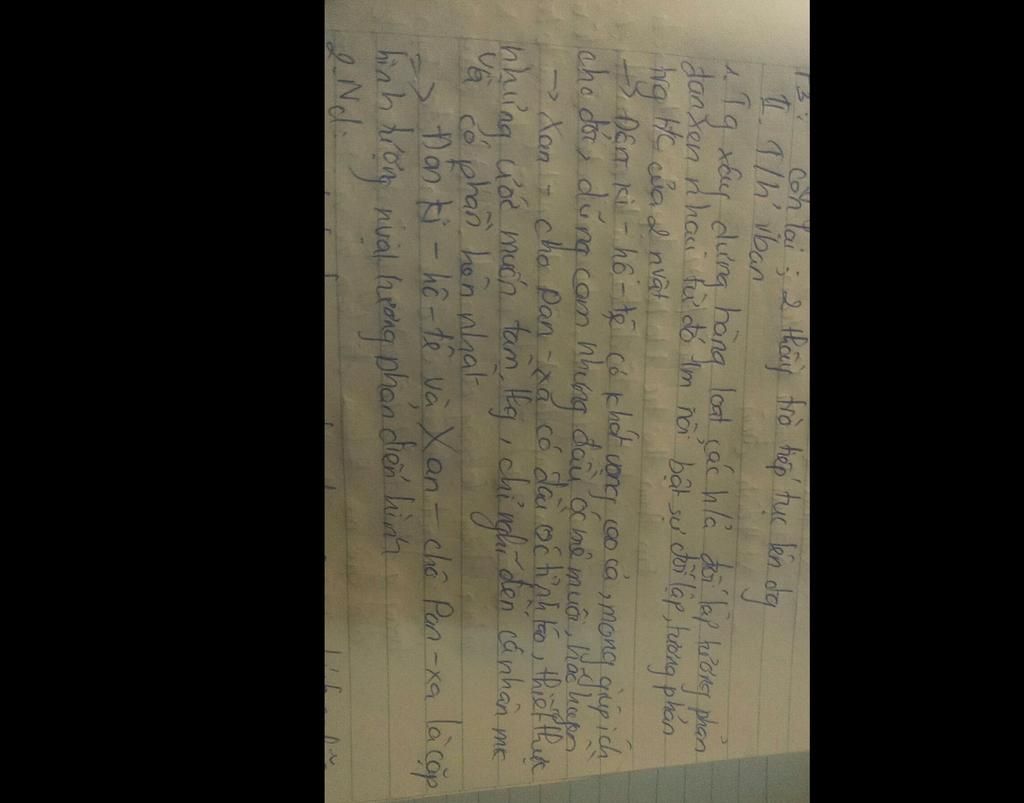 P3: còn lại: 2 thầy trò tiếp tục lên đg
II. T/h' vban
1. Tg xây dựng hàng loạt các h/a đối lập tương phản
đan xen nhau từ đó làm nổi bật sự đối lập, tương phản
trg t/c của 2 nvật
→ Đôn ki-hô-tê có khát vọng cao cả, mong giúp ích
cho đời, dũng cảm nhưng đầu óc mê muội, hão huyền
→ Xan-chô Pan-xa có đầu óc tỉnh táo, thiết thực
những ước muốn tầm thg, chỉ nghĩ đến cá nhân mk
và có phần hèn nhát
=> Đôn ki-hô-tê và Xan-chô Pan-xa là cặp
hình tượng nvật tương phản điển hình
2. Nd: